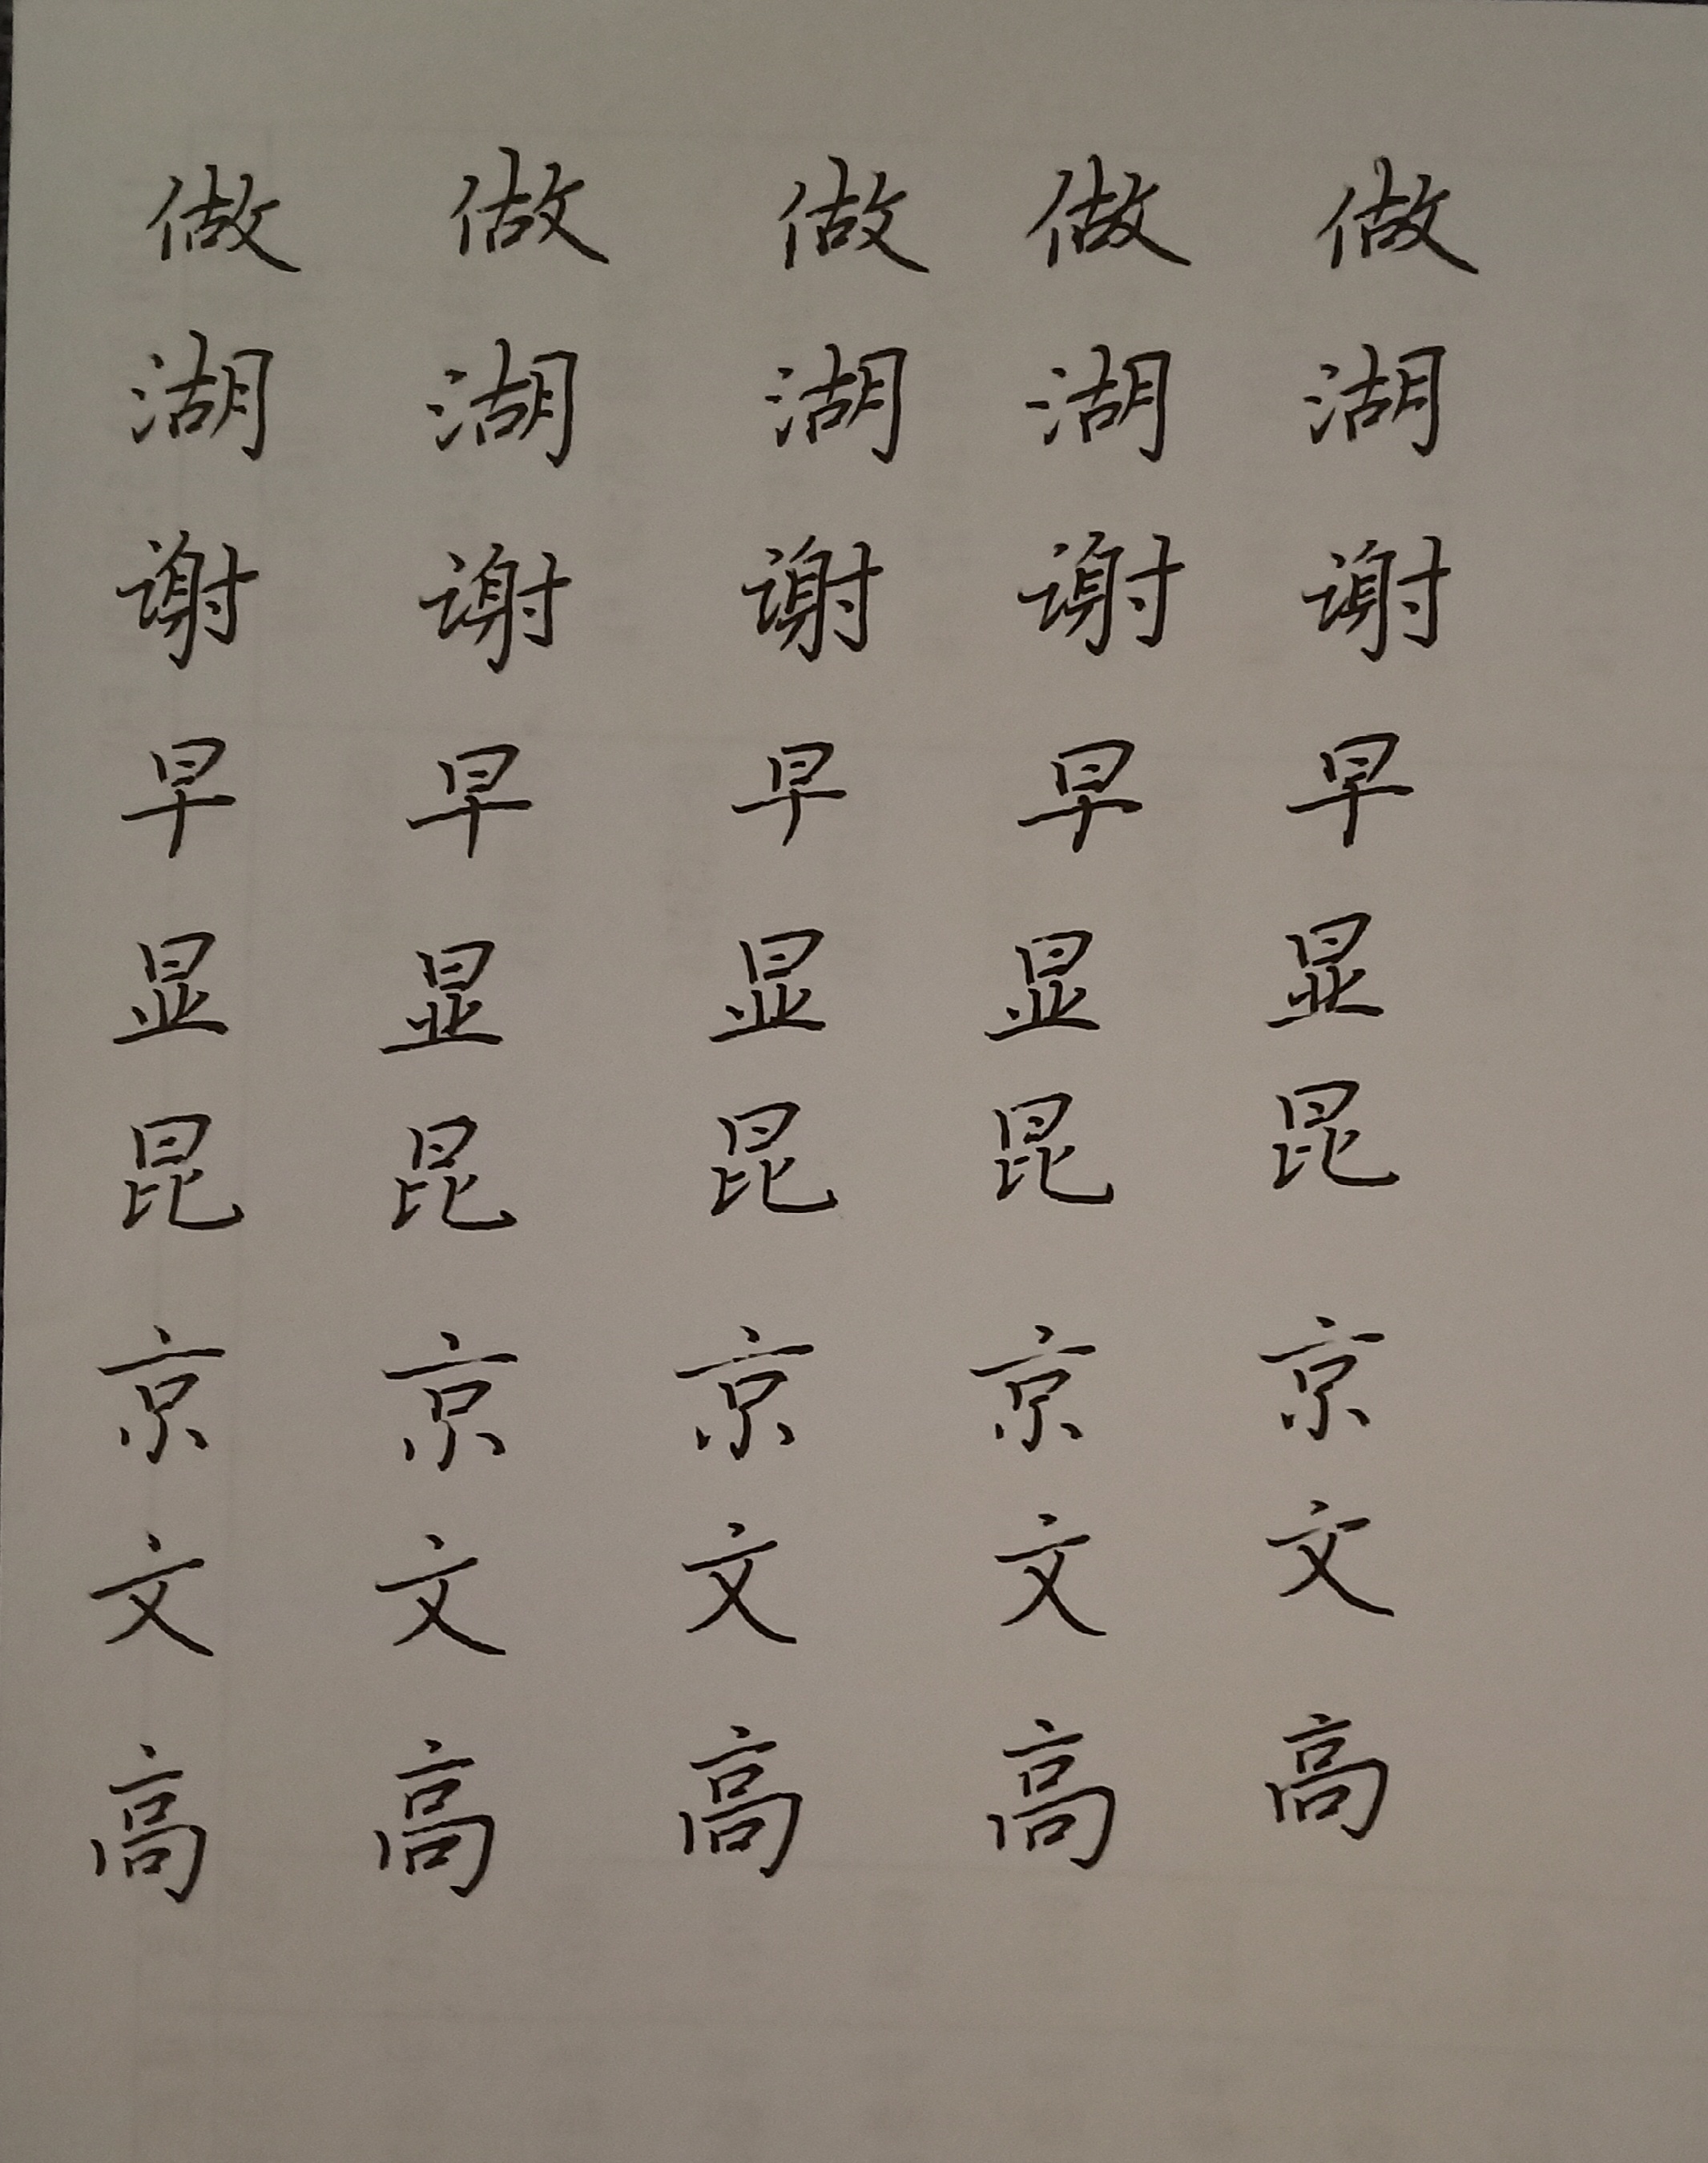 做 做 做 做 做
湖 湖 湖 湖 湖
谢 谢 谢 谢 谢
早 早 早 早 早
显 显 显 显 显
昆 昆 昆 昆 昆
京 京 京 京 京
文 文 文 文 文
高 高 高 高 高